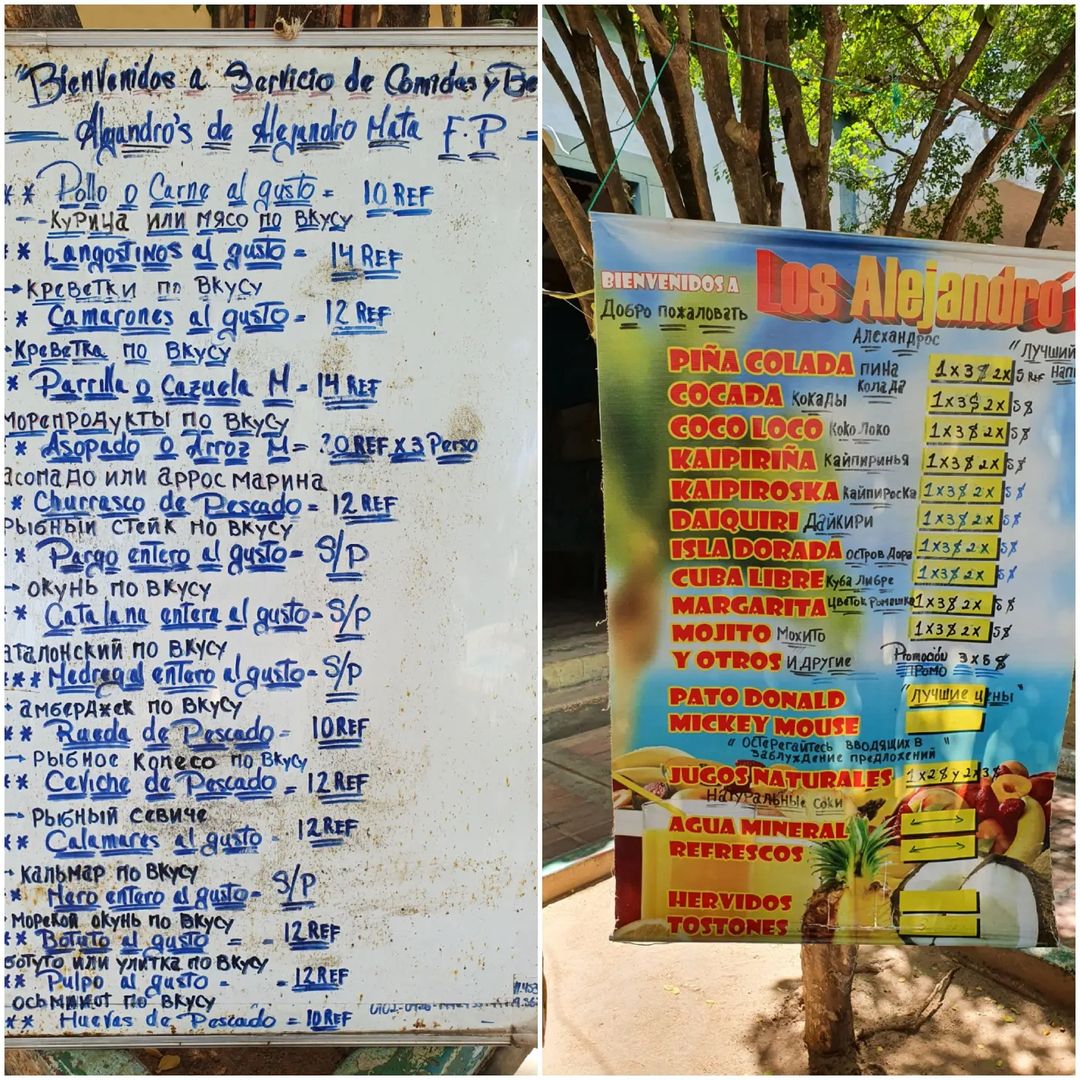 "Bienvenidos a Servicio de Comidas y Be
Alejandro's de Alejandro Mata F.P
** Pollo o Carne al gusto = 10 REF
-- Курица или мясо по вкусу
** Langostinos al gusto = 14 REF
Креветки по вкусу
* Camarones al gusto = 12 REF
Креветка по вкусу
* Parrilla o Cazuela M = 14 REF
морепродукты по вкусу
* Asopado o Arroz M = 20 REF x 3 Perso
асопадо или аррос марина
* Churrasco de Pescado = 12 REF
рыбный стейк по вкусу
* Pargo entero al gusto = S/P
окунь по вкусу
* Catalana entera al gusto = S/P
аталонский по вкусу
*** Medregal entero al gusto = S/P
амберджек по вкусу
** Rueda de Pescado = 10 REF
→ рыбное колесо по вкусу
** Ceviche de Pescado = 12 REF
→ рыбный севиче
** Calamares al gusto - 12 REF
кальмар по вкусу
* Mero entero al gusto = S/P
морской окунь по вкусу
** Botuto al gusto = - 12 REF
ботуто или улитка по вкусу
** Pulpo al gusto - - 12 REF
осьминог по вкусу
** Huevas de Pescado = 10 REF
BIENVENIDOS A Los Alejandro
Добро пожаловать
Алехандрос
"Лучший
PIÑA COLADA пина колада 1x3$ 2x 5 REF
COCADA кокады 1x3$ 2x 5$
COCO LOCO Коко Локо 1x3$ 2x 5$
KAIPIRIÑA кайпиринья 1x3$ 2x 5$
KAIPIROSKA кайпироска 1x3$ 2x 5$
DAIQUIRI Дайкири 1x3$ 2x 5$
ISLA DORADA остров Дора 1x3$ 2x 5$
CUBA LIBRE Куба Либре 1x3$ 2x 5$
MARGARITA цветок ромашка 1x3$ 2x 5$
MOJITO Мохито 1x3$ 2x 5$
Y OTROS И другие Promoción 3x5$
промо
PATO DONALD "Лучшие цены"
MICKEY MOUSE
"остерегайтесь вводящих в
заблуждение предложений"
JUGOS NATURALES 1x2$ y 2x3$
Натуральные соки
AGUA MINERAL
REFRESCOS
HERVIDOS
TOSTONES